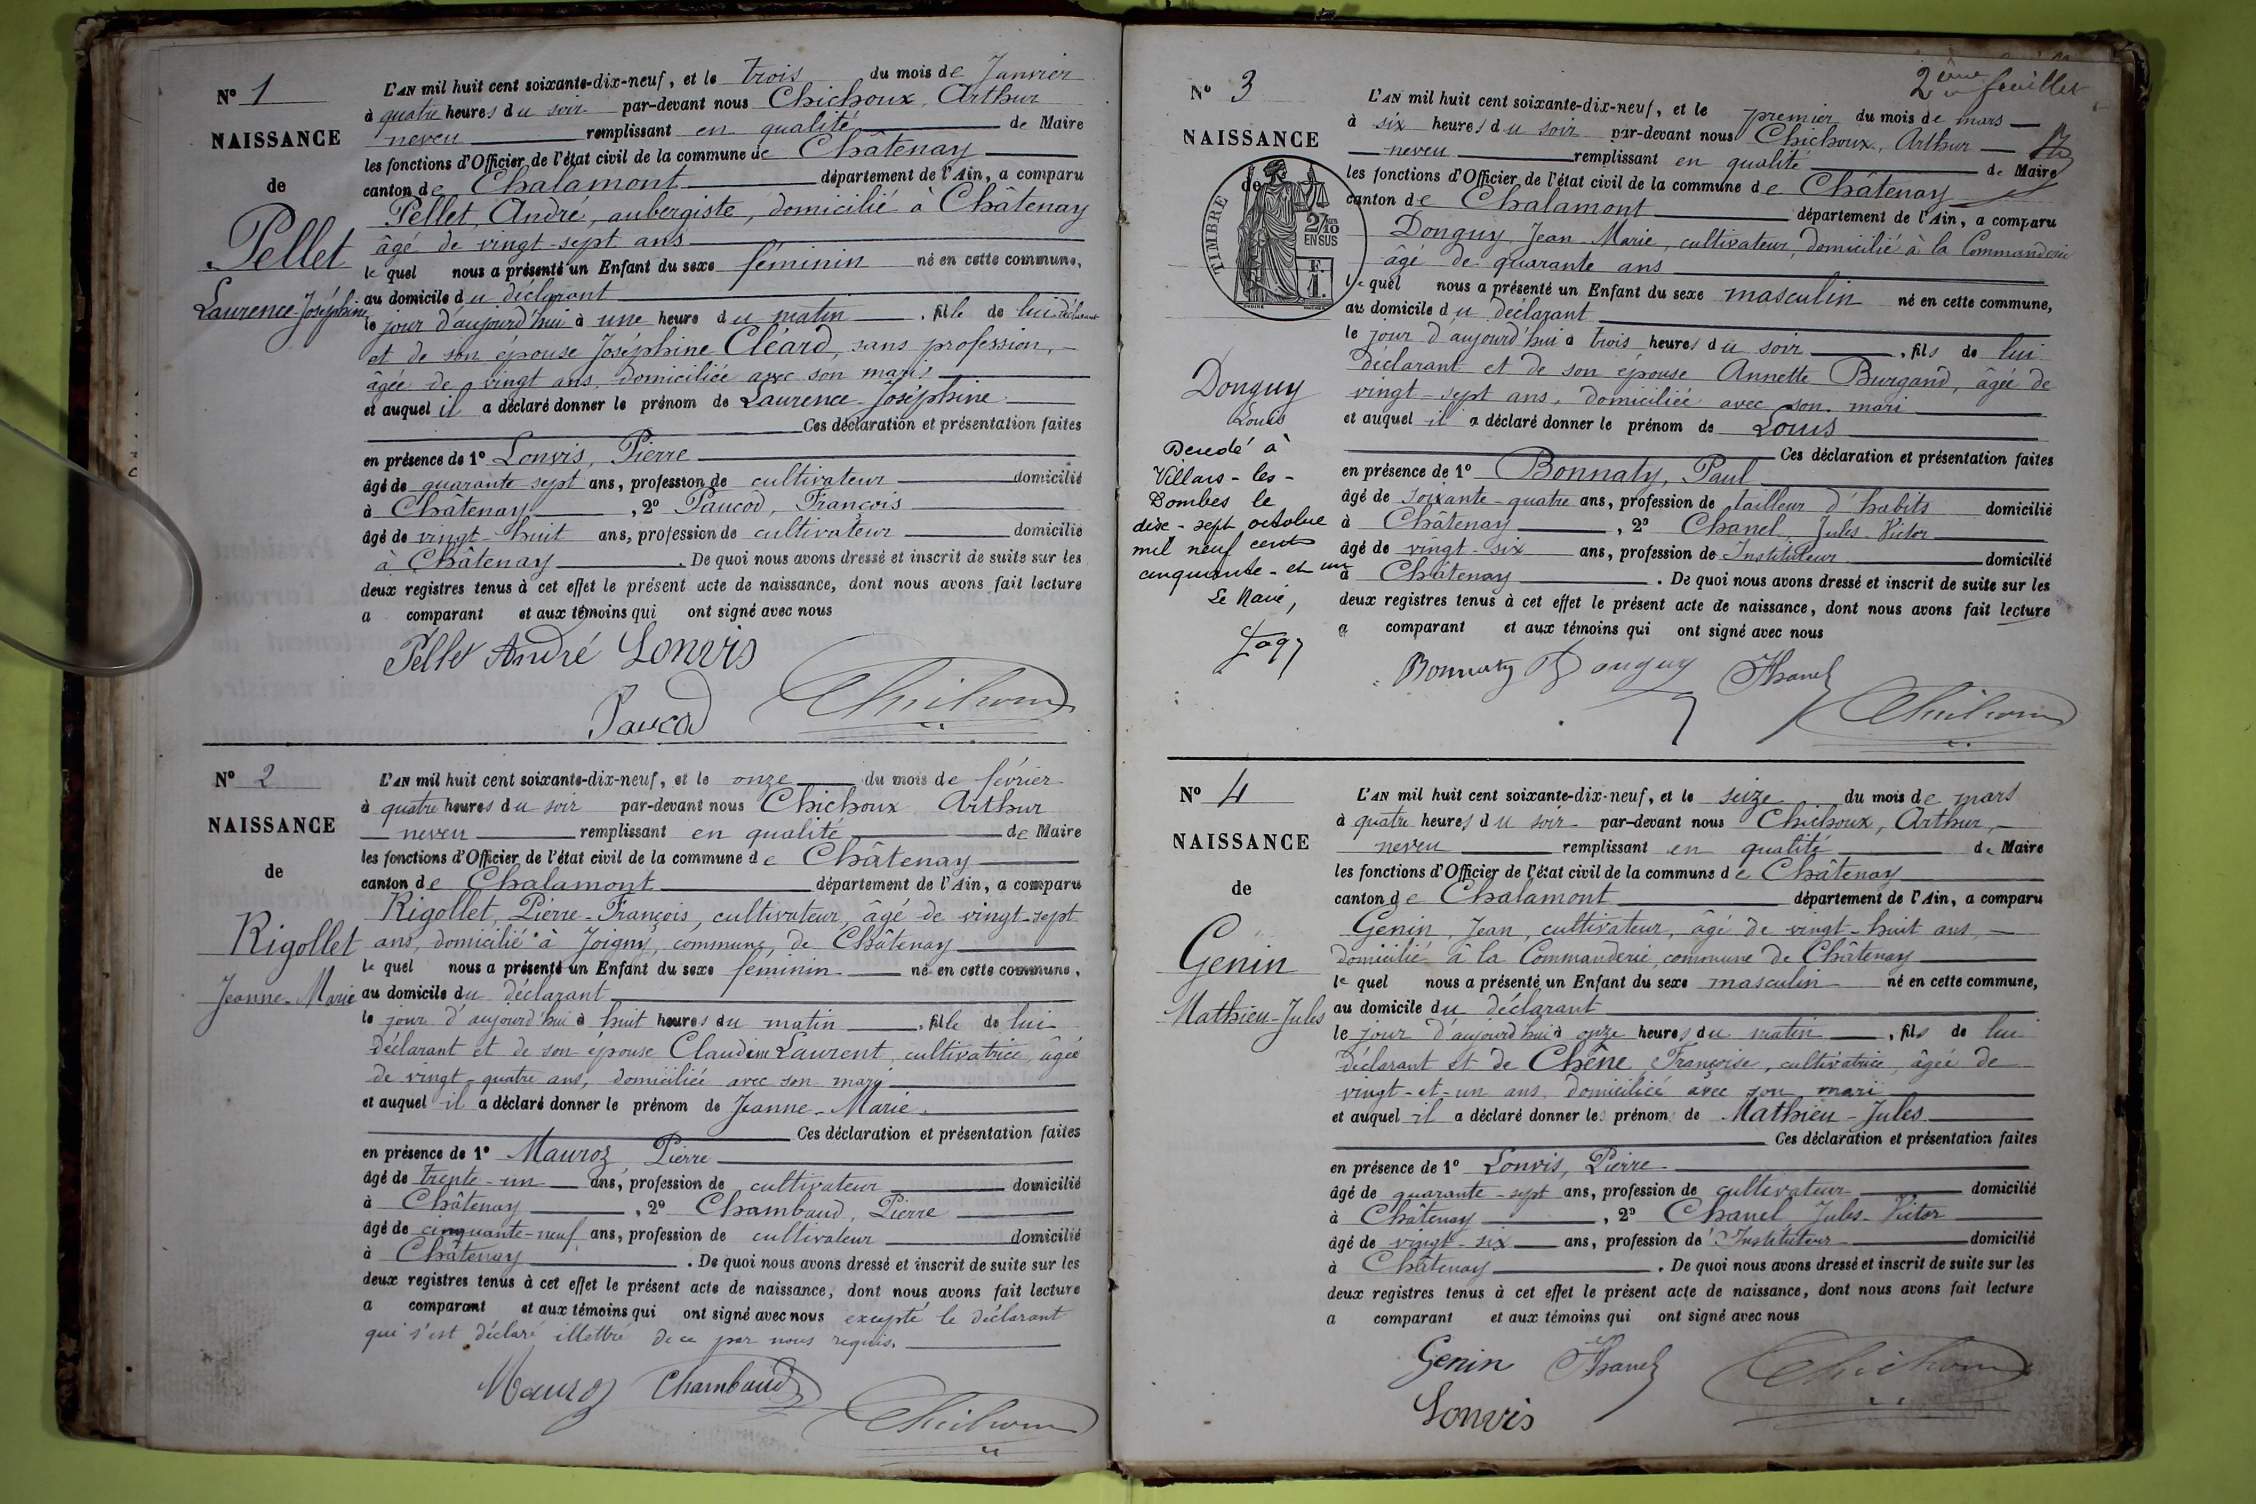 N° 1
NAISSANCE
de
Pellet
Laurence-Joséphine
L'AN mil huit cent soixante-dix-neuf, et le trois du mois de Janvier
à quatre heures du soir par-devant nous Chichoux, Arthur
neveu remplissant en qualité de Maire
les fonctions d'Officier de l'état civil de la commune de Châtenay
canton de Chalamont département de l'Ain, a comparu
Pellet, André, aubergiste, domicilié à Châtenay
âgé de vingt-sept ans
le quel nous a présenté un Enfant du sexe féminin né en cette commune,
au domicile du déclarant
le jour d'aujourd'hui à une heure du matin, fille de lui déclarant
et de son épouse Joséphine Cléard, sans profession,
âgée de vingt ans, domiciliée avec son mari
et auquel il a déclaré donner le prénom de Laurence-Joséphine
Ces déclaration et présentation faites
en présence de 1° Lonvis, Pierre
âgé de quarante-sept ans, profession de cultivateur domicilié
à Châtenay, 2° Paucod, François
âgé de vingt-huit ans, profession de cultivateur domicilié
à Châtenay. De quoi nous avons dressé et inscrit de suite sur les
deux registres tenus à cet effet le présent acte de naissance, dont nous avons fait lecture
a comparant et aux témoins qui ont signé avec nous
Pellet André Lonvis
Paucod Chichoux
N° 2
NAISSANCE
de
Rigollet
Jeanne-Marie
L'AN mil huit cent soixante-dix-neuf, et le onze du mois de février
à quatre heures du soir par-devant nous Chichoux Arthur
neveu remplissant en qualité de Maire
les fonctions d'Officier de l'état civil de la commune de Châtenay
canton de Chalamont département de l'Ain, a comparu
Rigollet, Pierre-François, cultivateur, âgé de vingt-sept
ans, domicilié à Joigny, commune de Châtenay
le quel nous a présenté un Enfant du sexe féminin né en cette commune,
au domicile du déclarant
le jour d'aujourd'hui à huit heures du matin, fille de lui
déclarant et de son épouse Claudine Laurent, cultivatrice, âgée
de vingt-quatre ans, domiciliée avec son mari
et auquel il a déclaré donner le prénom de Jeanne-Marie.
Ces déclaration et présentation faites
en présence de 1° Mauroz Pierre
âgé de trente-un ans, profession de cultivateur domicilié
à Châtenay, 2° Chambaud, Pierre
âgé de cinquante-neuf ans, profession de cultivateur domicilié
à Châtenay. De quoi nous avons dressé et inscrit de suite sur les
deux registres tenus à cet effet le présent acte de naissance, dont nous avons fait lecture
a comparant et aux témoins qui ont signé avec nous excepté le déclarant
qui s'est déclaré illettré de ce par nous requis.
Mauroz Chambaud
Chichoux
2ème feuillet
N° 3
NAISSANCE
de
TIMBRE
2/10
EN SUS
F.
1.
Donguy
Louis
Decedé à
Villars-les-
Dombes le
dix-sept octobre
mil neuf cent
cinquante-et un
Le Maire,
L'AN mil huit cent soixante-dix-neuf, et le premier du mois de mars
à six heures du soir par-devant nous Chichoux, Arthur
neveu remplissant en qualité de Maire
les fonctions d'Officier de l'état civil de la commune de Châtenay
canton de Chalamont département de l'Ain, a comparu
Donguy Jean-Marie, cultivateur, domicilié à la Commanderie
âgé de quarante ans
le quel nous a présenté un Enfant du sexe masculin né en cette commune,
au domicile du déclarant
le jour d'aujourd'hui à trois heures du soir, fils de lui
déclarant et de son épouse Annette Burgand, âgée de
vingt-sept ans, domiciliée avec son mari
et auquel il a déclaré donner le prénom de Louis
Ces déclaration et présentation faites
en présence de 1° Bonnaty, Paul
âgé de soixante-quatre ans, profession de tailleur d'habits domicilié
à Châtenay, 2° Chanel, Jules-Victor
âgé de vingt-six ans, profession de Instituteur domicilié
à Châtenay. De quoi nous avons dressé et inscrit de suite sur les
deux registres tenus à cet effet le présent acte de naissance, dont nous avons fait lecture
a comparant et aux témoins qui ont signé avec nous
Bonnaty Donguy JChanel
Chichoux
N° 4
NAISSANCE
de
Genin
Mathieu-Jules
L'AN mil huit cent soixante-dix-neuf, et le seize du mois de mars
à quatre heures du soir par-devant nous Chichoux, Arthur,
neveu remplissant en qualité de Maire
les fonctions d'Officier de l'état civil de la commune de Châtenay
canton de Chalamont département de l'Ain, a comparu
Genin, Jean, cultivateur, âgé de vingt-huit ans,
domicilié à la Commanderie, commune de Châtenay
le quel nous a présenté un Enfant du sexe masculin né en cette commune,
au domicile du déclarant
le jour d'aujourd'hui à onze heures du matin, fils de lui
déclarant et de Chêne Françoise, cultivatrice, âgée de
vingt-et-un ans domiciliée avec son mari
et auquel il a déclaré donner le prénom de Mathieu-Jules
Ces déclaration et présentation faites
en présence de 1° Lonvis, Pierre
âgé de quarante-sept ans, profession de cultivateur domicilié
à Châtenay, 2° Chanel Jules-Victor
âgé de vingt-six ans, profession de Instituteur domicilié
à Châtenay. De quoi nous avons dressé et inscrit de suite sur les
deux registres tenus à cet effet le présent acte de naissance, dont nous avons fait lecture
a comparant et aux témoins qui ont signé avec nous
Genin JChanel Chichoux
Lonvis